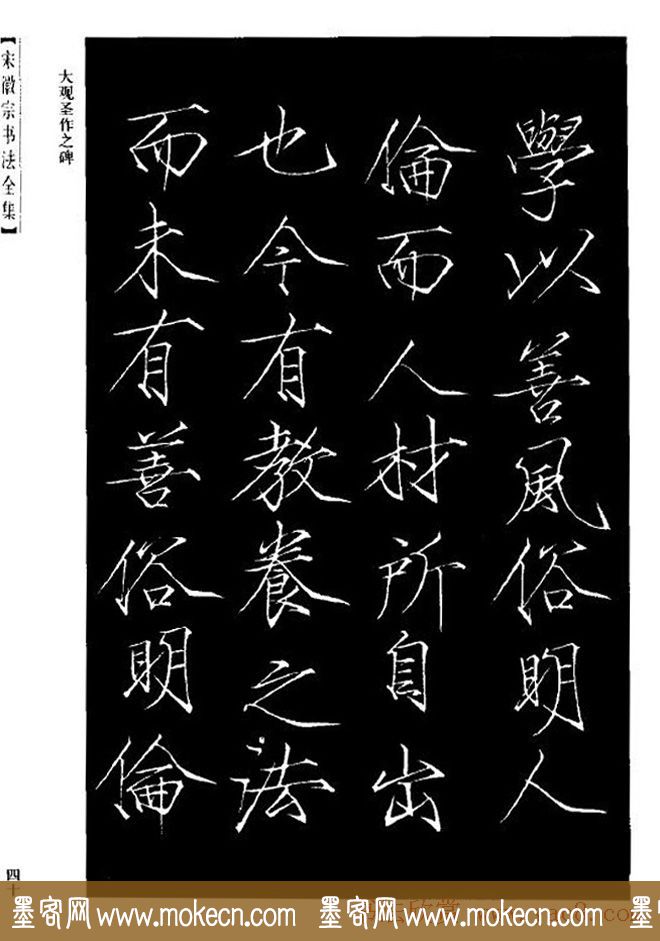 學以善風俗明人
倫而人材所自出
也今有教養之法
而未有善俗明倫
大观圣作之碑
【宋徽宗书法全集】
四十
墨客网 www.mokecn.com 墨客网 www.mokecn.com